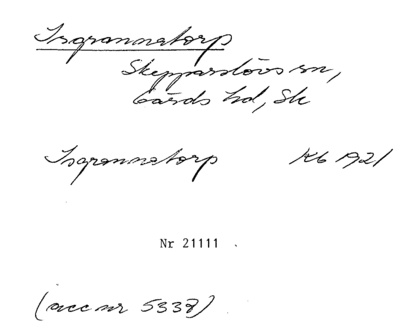 Isgrannatorp
Skepparslövs sn,
Gärds hd, Sk
Isgrannatorp Kb 1921
Nr 21111
(acc nr 5338)